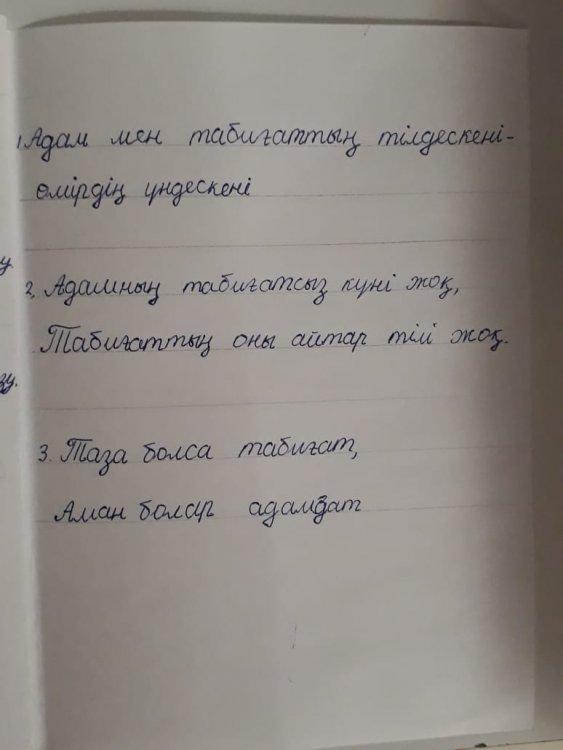 1. Адам мен табиғаттың тілдескені-
өмірдің үндескені
у
2, Адамның табиғатсыз күні жоқ,
Табиғаттың оны айтар тілі жоқ.
зу.
3. Таза болса табиғат,
Аман болар адамзат